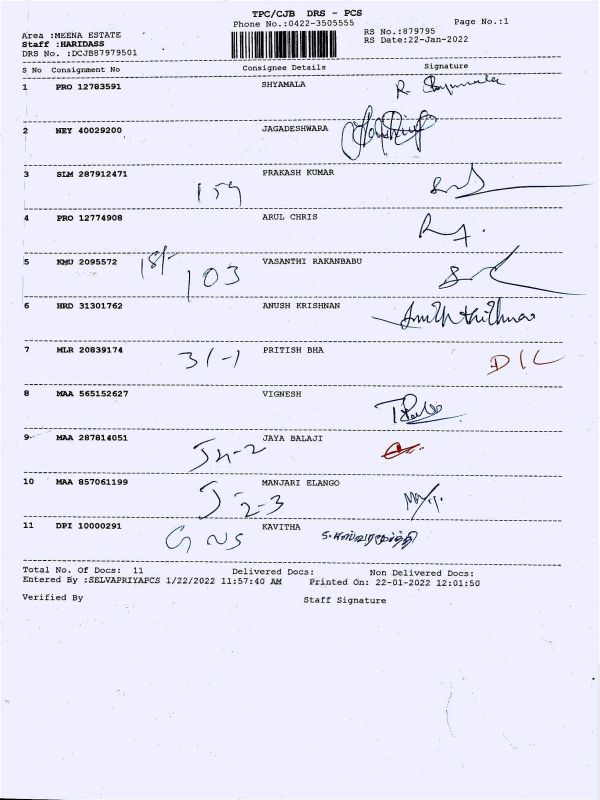 TPC/CJB DRS - PCS
Phone No.:0422-3505555
Page No.:1
Area :MEENA ESTATE
RS No.:879795
Staff :HARIDASS
RS Date:22-Jan-2022
DRS No. :DCJB87979501
S No Consignment No Consignee Details Signature
1 PRO 12783591 SHYAMALA R. Shyamala
2 NEY 40029200 JAGADESHWARA
3 SLM 287912471 PRAKASH KUMAR
159
4 PRO 12774908 ARUL CHRIS
5 KMU 2095572 VASANTHI RAKANBABU
103
6 HRD 31301762 ANUSH KRISHNAN
7 MLR 20839174 PRITISH BHA
31-1 D/L
8 MAA 565152627 VIGNESH
9 MAA 287814051 JAYA BALAJI
10 MAA 857061199 MANJARI ELANGO
2-3
11 DPI 10000291 KAVITHA
Total No. Of Docs: 11 Delivered Docs: Non Delivered Docs:
Entered By :SELVAPRIYAPCS 1/22/2022 11:57:40 AM Printed On: 22-01-2022 12:01:50
Verified By Staff Signature